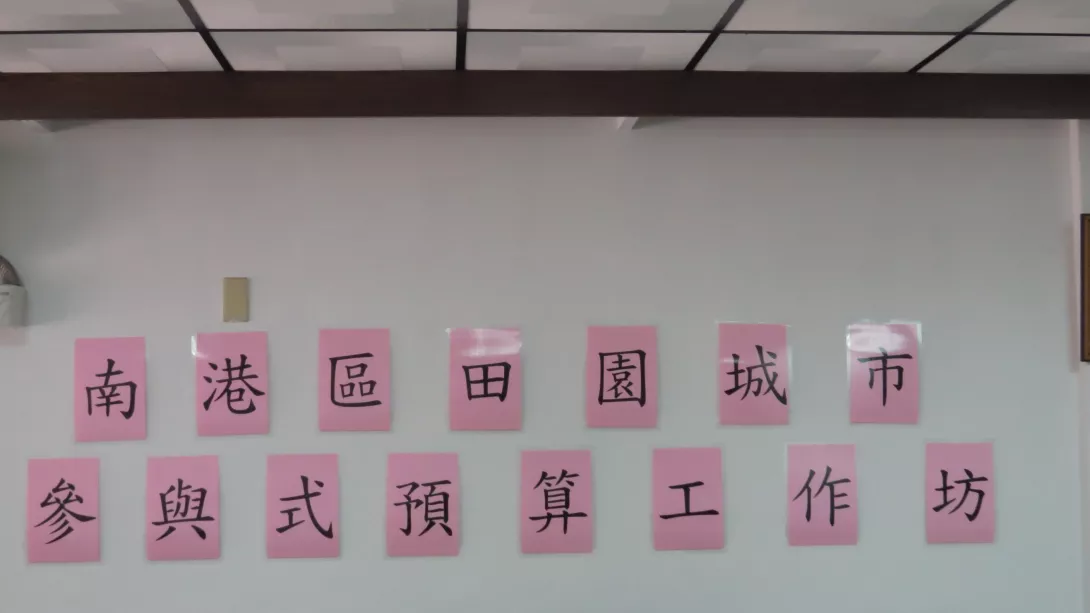 南港區田園城市
參與式預算工作坊